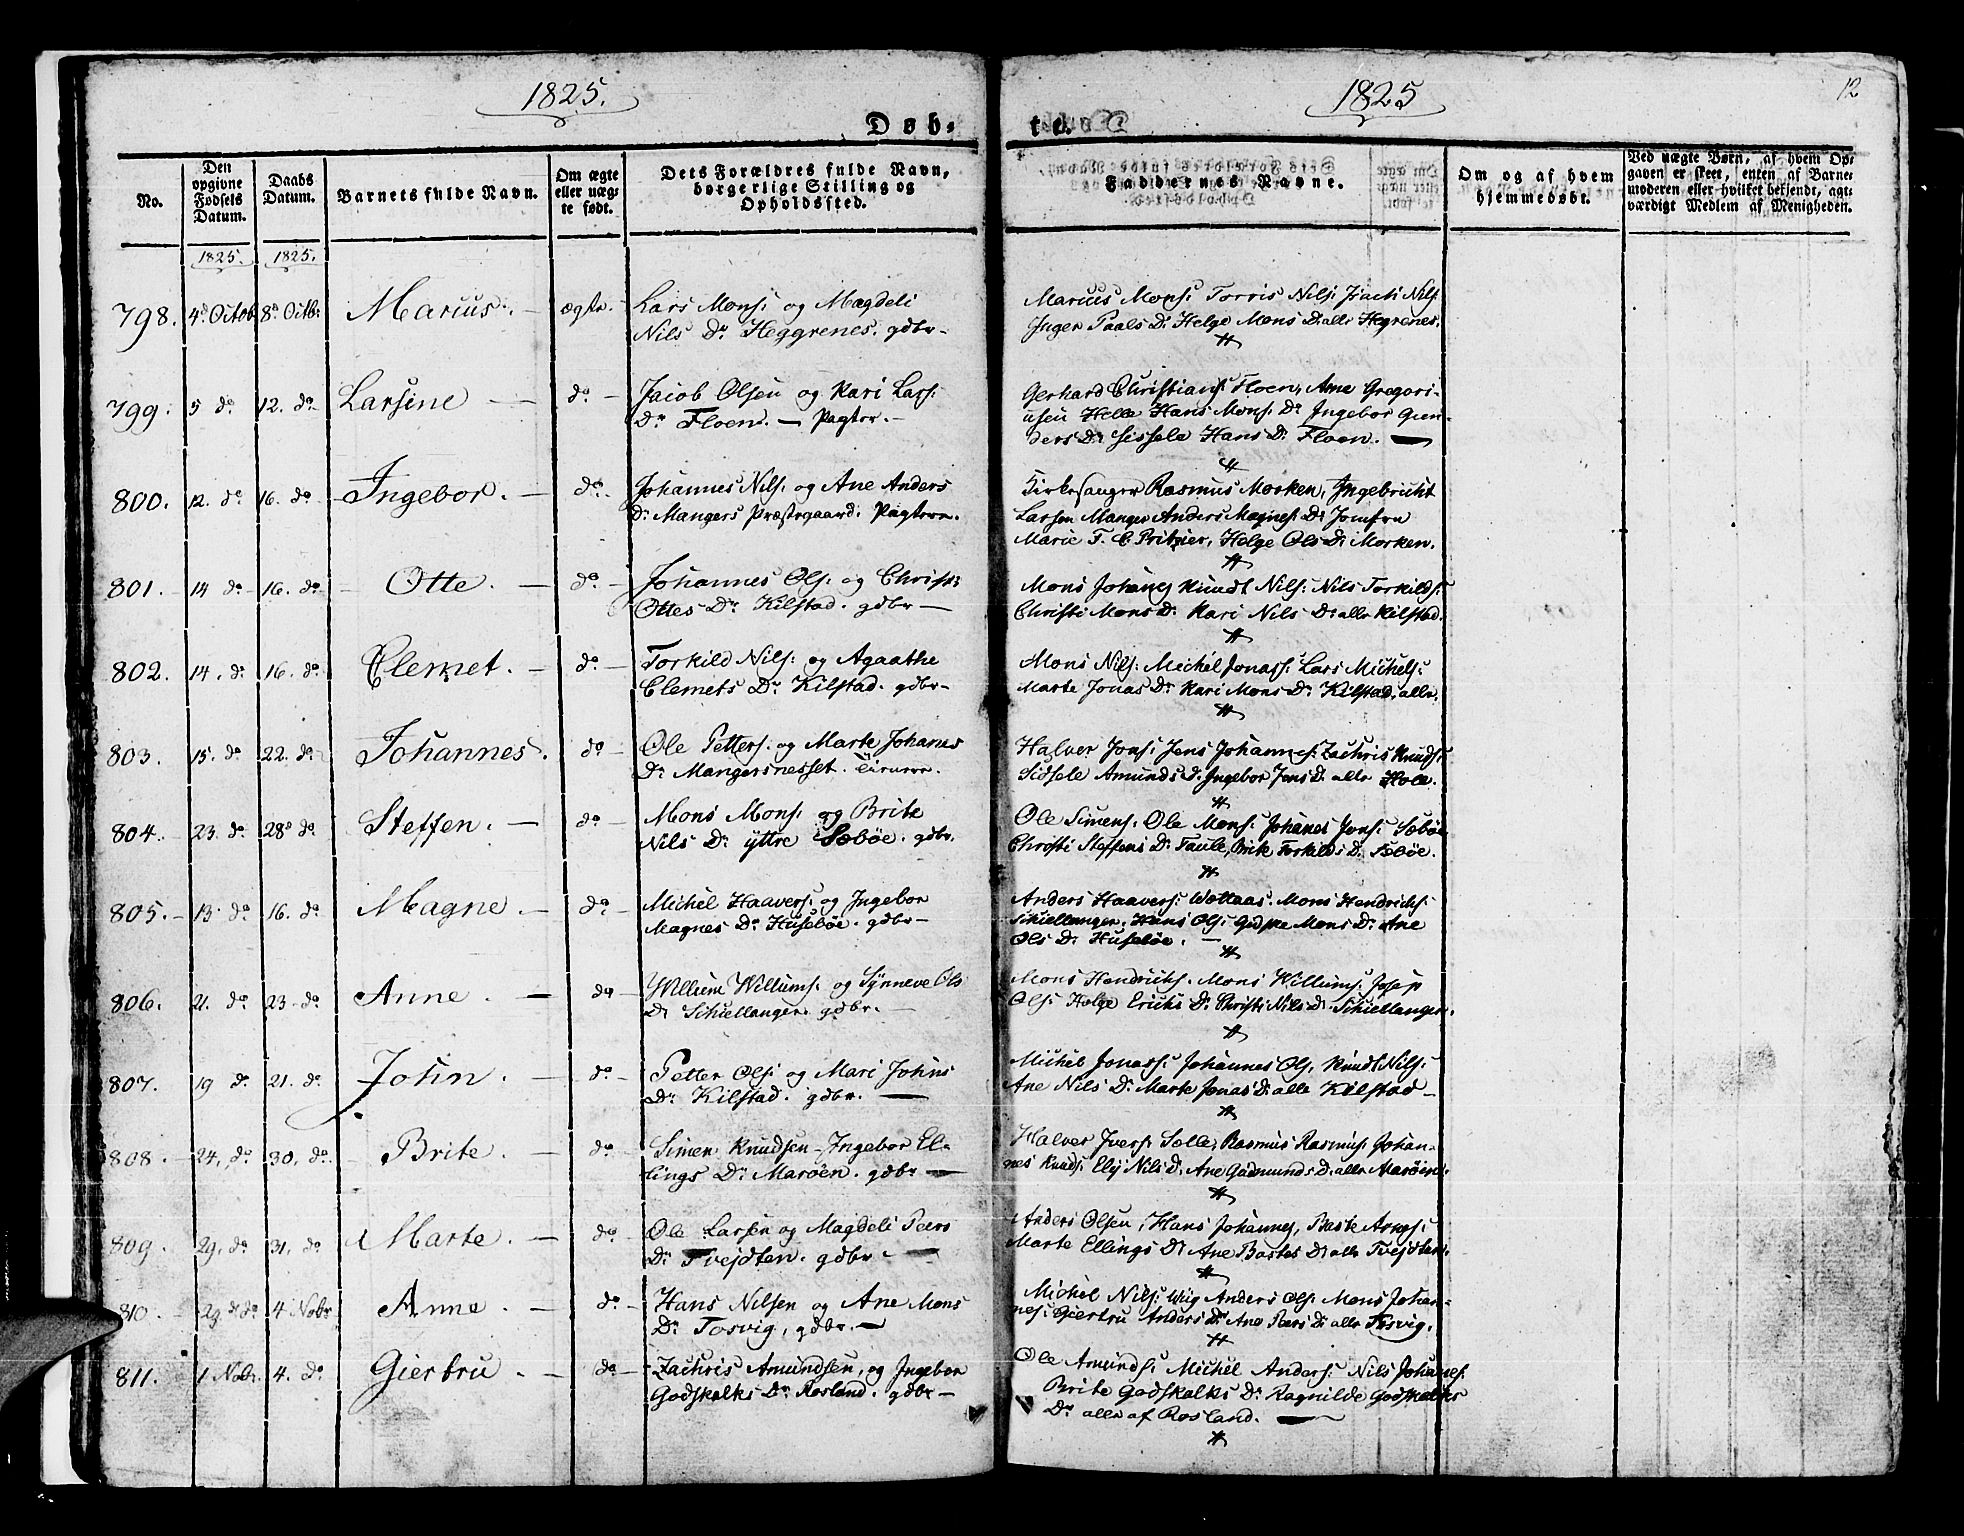 1825.
1825
12
Døb-
te.
No.
Den opgivne Fødsels Datum.
Daabs Datum.
Barnets fulde Navn.
Om ægte eller uægte født.
Dets Forældres fulde Navn, borgerlige Stilling og Opholdssted.
Faddernes Navne.
Om og af hvem hjemmedøbt.
Ved uægte Børn, af hvem Opgaven er skeet, enten af Barnemoderen eller hvilket bekjendt, agtværdigt Medlem af Menigheden.
1825. 1825.
798. 4d Octob 8d Octb: Marius. ægte. Lars Mons: og Magdeli
Nils Dr Heggrenes. gdbr
Marcus Mons: Torris Nils: Nils:
Inger Paals D: Helge Mons D: alle Hegrenes.
799. 5 do 12. do Larsine do Jacob Olsen og Kari Lars:
Dr Floen. Pagter.
Gerhard Christians: Floen, Arne Gregori-
usen Helle Hans Mons: D: Ingebor Gun-
ders D: Sissele Hans D: Floen.
800. 12. do 16. do Ingebor. do. Johannes Nils: og Ane Anders
D: Mangers Præstegaard: Pagtere.
Kirkesanger Rasmus Morken, Ingebricht
Larsen Manger Anders Magnes: D: Jomfru
Marie F. C. Pritzier, Helge Ols D: Morken.
801. 14 do 16. do Otte. do Johannes Ols: og Christi
Ottes Dr Kilstad. gdbr
Mons Johanes Knudt Nils: Nils Torkilds:
Christi Mons D: Kari Nils D: alle Kilstad.
802. 14. do 16. do Clemet. do Torkild Nils: og Agaathe
Clemets Dr Kilstad. gdbr
Mons Nils: Michel Jonas: Lars Michels:
Marte Jonas D: Kari Mons D: Kilstad, alle.
803. 15. do 22. do Johannes. do Ole Petters: og Marte Johanes
Dr Mangersnesset.
Halver Jons: Jens Johannes: Zachris Knuds:
Sidsele Amunds D: Ingebor Jens D: alle Hole.
804. 23. do 28d do Steffen. do Mons Mons: og Brite
Nils Dr yttre Sæbøe. gdbr.
Ole Simens: Ole Mons: Johanes Jons: Sæbøe
Christi Steffens D: Taule, Brite Torkilds D: Sæbøe.
805. 13. do 16. do Magne. do Michel Haavers: og Ingebor
Magnes Dr Husebøe. gdbr
Anders Haavers: Wattaas. Mons Hendrichs:
Schiellanger. Hans Ols: Godske Mons D: Ane
Ols D: Husebøe.
806. 21. do 23. do Anne. do Willum Willums: og Synneve Ols
D: Schiellanger. gdbr.
Mons Hendrichs: Mons Willums: Josep
Ols: Helge Erichs D: Christi Nils D: Schiellanger.
807. 19 do 21. do John. do Petter Ols: og Mari Johns
Dr Kilstad. gdbr.
Michel Jonas: Johannes Ols, Knudt Nils:
Ane Nils D: Marte Jonas D: alle Kilstad
808. 24. do 30. do Brite. do Simen Knudsen Ingebor El-
lings Dr Marøen. gdbr
Halver Ivers: Solle, Rasmus Rasmus: Johan-
nes Knuds: Eli Nils D: Ane Gudmunds D: alle Marøen.
809. 29. do 31. do Marte. do Ole Larsen og Magdeli Peers
Dr Tvejdten. gdbr
Anders Olsen, Hans Johannes, Baste Arnes:
Marte Ellings D: Ane Bastes D: alle Tvejdten.
810. 29 do 4 Nobr Anne. do Hans Nilsen og Ane Mons
Dr Tosvig, gdbr.
Michel Nils: Wiig Anders Ols: Mons Johan-
nes: Giertru Anders Dr Ane Peers D: alle Tosvig.
811. 1 Nobr. 4. do Giertru. do Zachris Amundsen, og Ingebor
Godskalks Dr Rosland. gdbr
Ole Amunds: Michel Anders: Nils Johanes:
Brite Godskalks Dr Ragnilde Godskalks
Dr alle af Rosland.